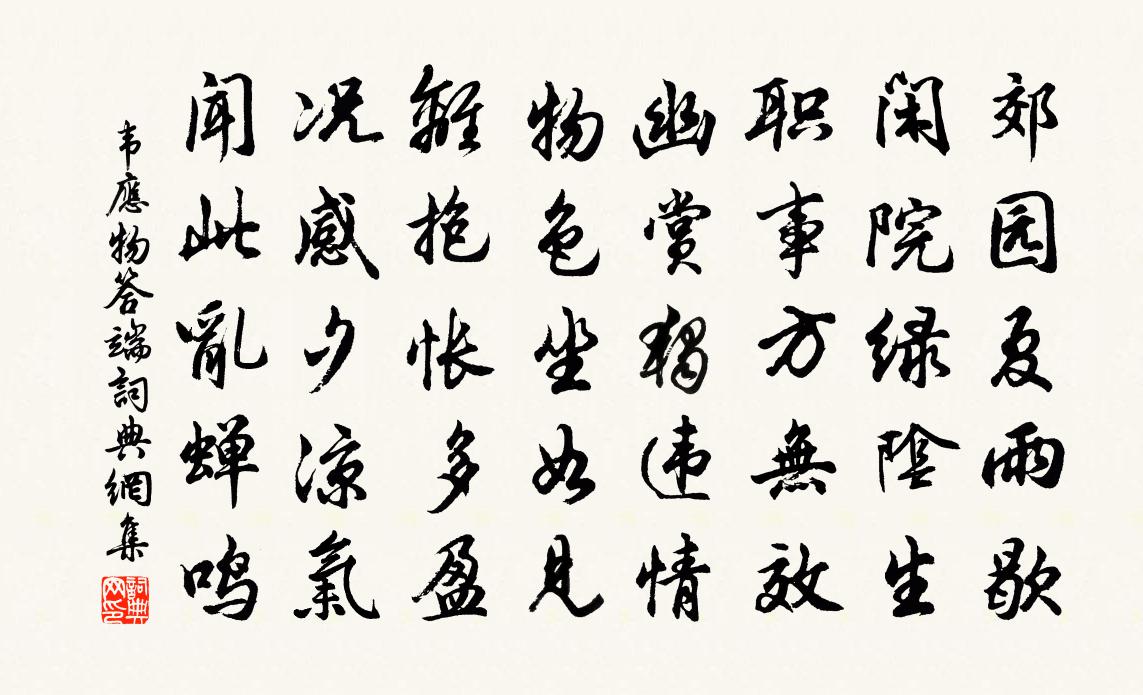 郊园夏雨歇
闲院绿陰生
职事方無效
幽赏独违情
物色坐如见
離抱怅多盈
况感夕凉氣
闻此亂蝉鸣
韦應物答端詞典網集
詞典网印